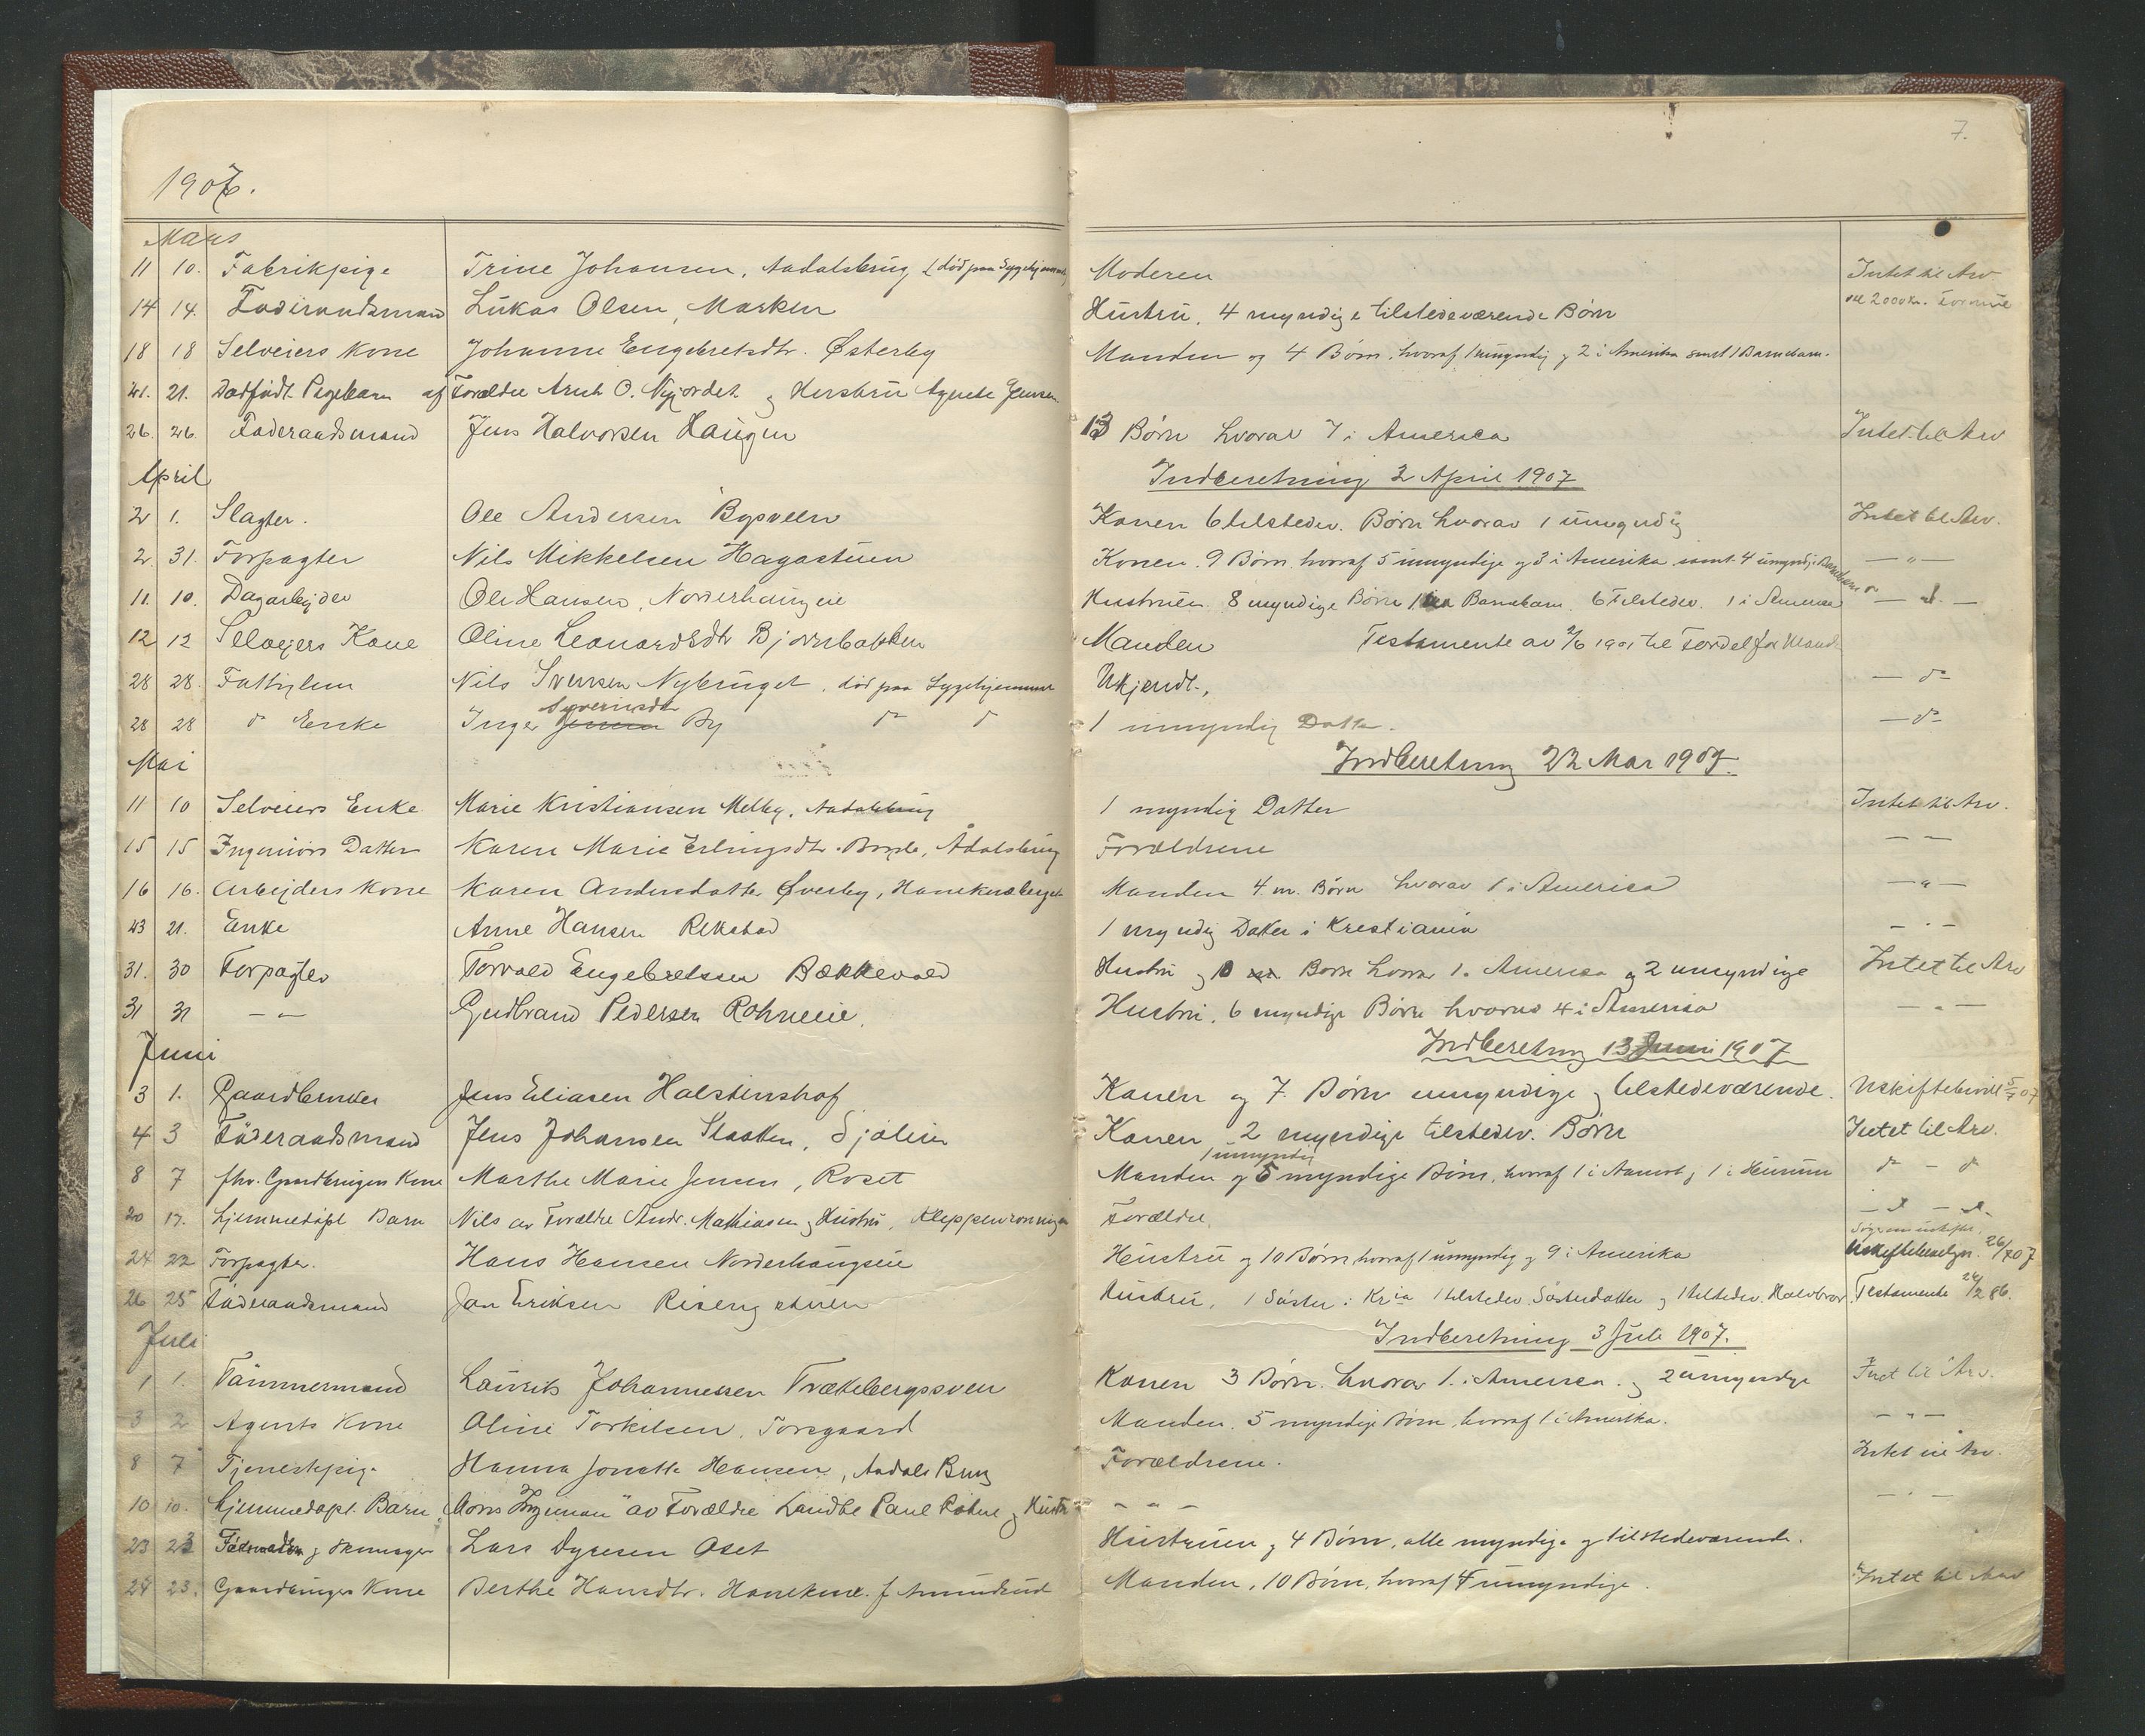 7.
1907.
Mars
11 10. Fabrikpige Trine Johansen, Aadalsbrug (død paa Sygehjemmet) Moderen Intet til Arv
14 14. Føderaadsmand Lukas Olsen, Marken Hustru, 4 myndige tilstedeværende Børn 2000 Kr. Formue
18 18 Selveiers Kone Johanne Engebretsdtr. Østerby Manden og 4 Børn, hvoraf 1 umyndig og 2 i Amerika samt 1 Barnebarn.
21. 21. Dødfødt Pigebarn af Forældre Arnt O. Nyjordet og Hustru Agnete Jensen
26. 26. Føderaadsmand Jens Halvorsen Haugen 13 Børn hvorav 7 i America Intet til Arv
April Indberetning 2 April 1907
2 1. Slagter. Ole Andersen Bysveen Konen 6 tilstedev. Børn hvorav 1 umyndig Intet til Arv.
2 31. Forpagter Nils Mikkelsen Hagastuen Konen. 9 Børn hvoraf 5 umyndige og 3 i Amerika samt 4 umyndige Barnebørn — " —
11. 10. Dagarbejder Ole Hansen, Norderhaugeie Hustruen 8 myndige Børn 1 Barnebarn. 6 tilstedev. 1 i America — d. —
12 12 Selvejers Kone Oline Leonardsdtr Bjørnbakken Manden Testamente av 2/6 1901 til Fordel for Mand
28 28. Fattiglem Nils Svensen Nybruget, død paa Sygehjemmet Ukjendt, — do
28 28 do Enke Inger Syverinsdtr By do d 1 umyndig Datter. — do
Mai Indberetning 22 Mai 1907.
11 10 Selveiers Enke Marie Kristiansen Melby, Aadalsbrug 1 myndig Datter Intet til Arv.
15 15 Ingeniørs Datter Karen Marie Erlingsdtr. Ådalsbrug Forældrene — —
16 16. Arbejders Kone Karen Andersdatter Øverby, Haneknæberget Manden 4 m. Børn hvorav 1 i America — " —
23 21. Enke Anne Hansen Rekstad 1 myndig Datter i Kristiania — " —
31. 30 Forpagter Torvald Engebretsen Bækkevold Hustru og Børn hvorav 1 i America og 2 umyndige Intet til Arv
31 31 — " — Gudbrand Pedersen Rohneeie. Hustru. 6 myndige Børn hvorav 4 i America — " —
Juni Indberetning 13 Juni 1907
3 1. Gaardbruker Jens Eliasen Halstenshof Konen og 7 Børn umyndige og tilstedeværende. Uskiftebevill 5/7 07
4 3 Føderaadsmand Jens Johansen Slaatten, Sjølien Konen 2 myndige tilstedev. Børn Intet til Arv.
8 7 fhv. Gaardbrugers Kone Marthe Marie Jensen, Roset Manden og 5 myndige Børn, hvoraf 1 i Aamot, 1 i Hurum do - do
1 umyndig
20 17. hjemmedøpt Barn Nils av Forældre Andr. Mathiasen og Hustru, Kleppenrønningen Forældre. — d. — d.
24 22 Forpagter. Hans Hansen Norderhaugseie Hustru og 10 Børn hvoraf 1 umyndig og 9 i Amerika Uskiftebevilgn. 26/7 07
26 25 Føderaadsmand Jon Eriksen Risengstuen Hustru, 1 Søster i Kria 1 tilstedev. Søsterdatter og 1 tilstedev. Halvbror. Testamente 24/2 86.
Juli Indberetning 3 Juli 1907.
1 1. Tømmermand Laurits Johannessen Trættebergssveen Konen 3 Børn. hvorav 1. i America. og 2 umyndige Intet til Arv.
3 2 Agents Kone Oline Torkilsen, Torsgaard Manden. 5 myndige Børn, hvoraf 1 i Amerika. — " —
8 7 Tjenestepige Hanna Jonette Hansen, Aadals Brug Forældrene. Intet til Arv.
10 10. hjemmedøpt. Barn av Forældre Landbr Paul Rohne og Hustru — " — — " —
23 23 og Skomager Lars Dyresen Oset Hustruen og 4 Børn, alle myndige og tilstedeværende.
24 23. Gaardbrugers Kone Berthe Hansdtr. Hanekne. f Amundrud Manden, 10 Børn, hvoraf 4 umyndige. Intet til Arv